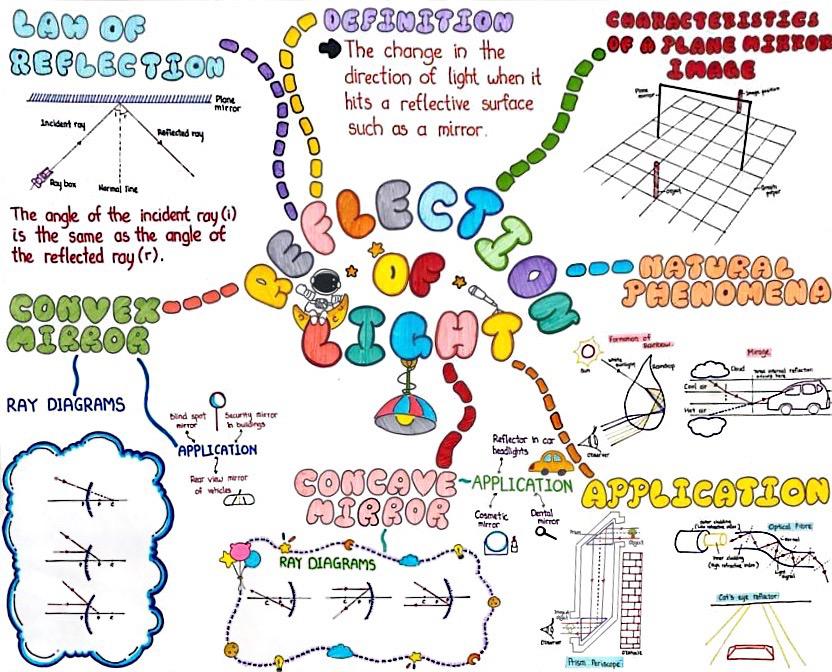 LAW OF
REFLECTION
Plane
mirror
Incident ray
Reflected ray
Ray box
Normal line
The angle of the incident ray (i)
is the same as the angle of
the reflected ray (r).
DEFINITION
The change in the
direction of light when it
hits a reflective surface
such as a mirror.
CHARACTERISTICS
OF A PLANE MIRROR
IMAGE
Plane
mirror
Image position
Object
Graph
paper
REFLECTION
OF
LIGHT
NATURAL
PHENOMENA
Formation of
Rainbow
Sun
White
sunlight
Raindrop
Observer
Mirage
Cloud
Total internal reflection
occurs here
Cool air
Hot air
CONVEX
MIRROR
RAY DIAGRAMS
F
C
F
C
F
C
Blind spot
mirror
Security mirror
in buildings
APPLICATION
Rear view mirror
of vehicles
CONCAVE
MIRROR
APPLICATION
Reflector in car
headlights
Cosmetic
mirror
Dental
mirror
RAY DIAGRAMS
C
F
C
F
C
F
APPLICATION
Prism
Object
Image of
object
Observer
Obstacle
Prism Periscope
Optical Fibre
Outer cladding
(Low refractive index)
Inner cladding
(high refractive index)
Normal
Light
signal
Cat's eye reflector